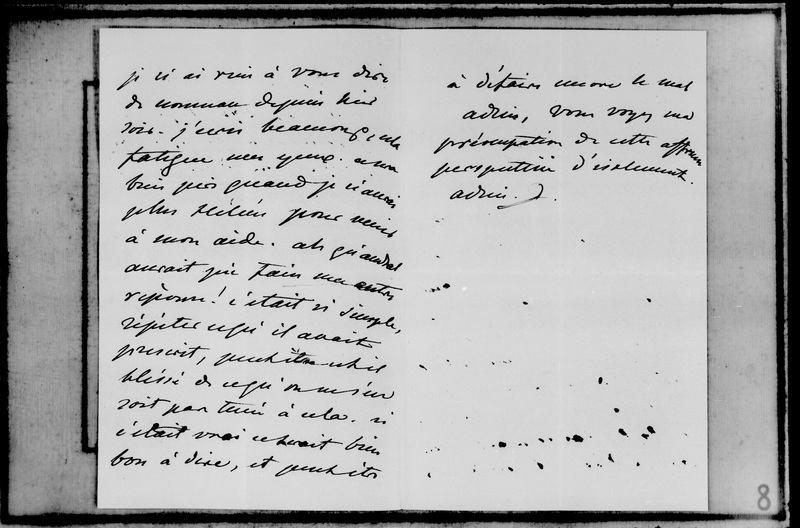 je n'ai rien à vous dire
de nouveau depuis hier
soir. j'écris beaucoup, cela
fatigue mes yeux. cesera
bien pis quand je n'aurai
plus Hélène pour venir
à mon aide. ah qu'andral
aurait pu faire une autre
réponse! c'était si simple,
répéter ce qu'il avait
prescrit, peut être est il
blessé de ce qu'on ne s'en
soit pas tenu à cela. si
c'était vrai ce serait bien
bon à dire, et peut être
à détruire encore le mal
adieu, vous voyez ma
préoccupation de cette affreuse
perspective d'isolement.
adieu.
8